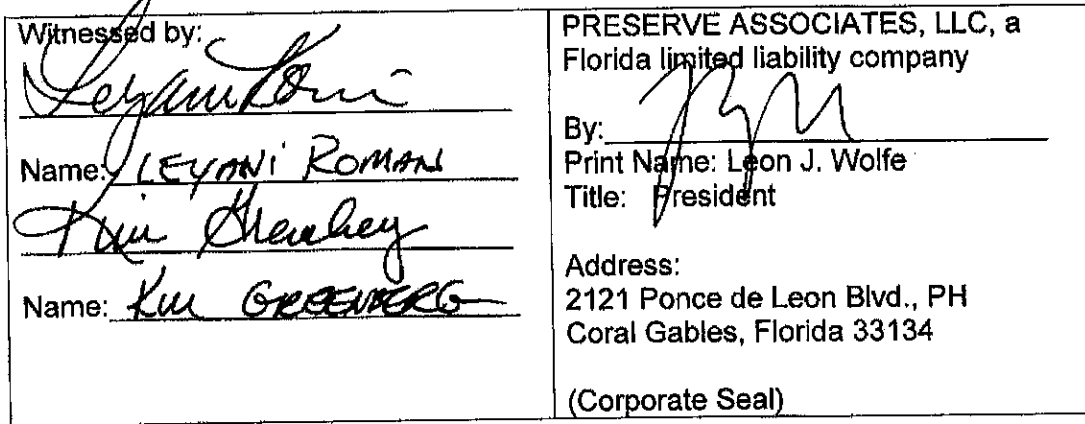 Witnessed by:
Leyani Roman
Name: LEYANI ROMAN
Kim Greenberg
Name: Kim GREENBERG
PRESERVE ASSOCIATES, LLC, a
Florida limited liability company
By:
Print Name: Leon J. Wolfe
Title: President
Address:
2121 Ponce de Leon Blvd., PH
Coral Gables, Florida 33134
(Corporate Seal)